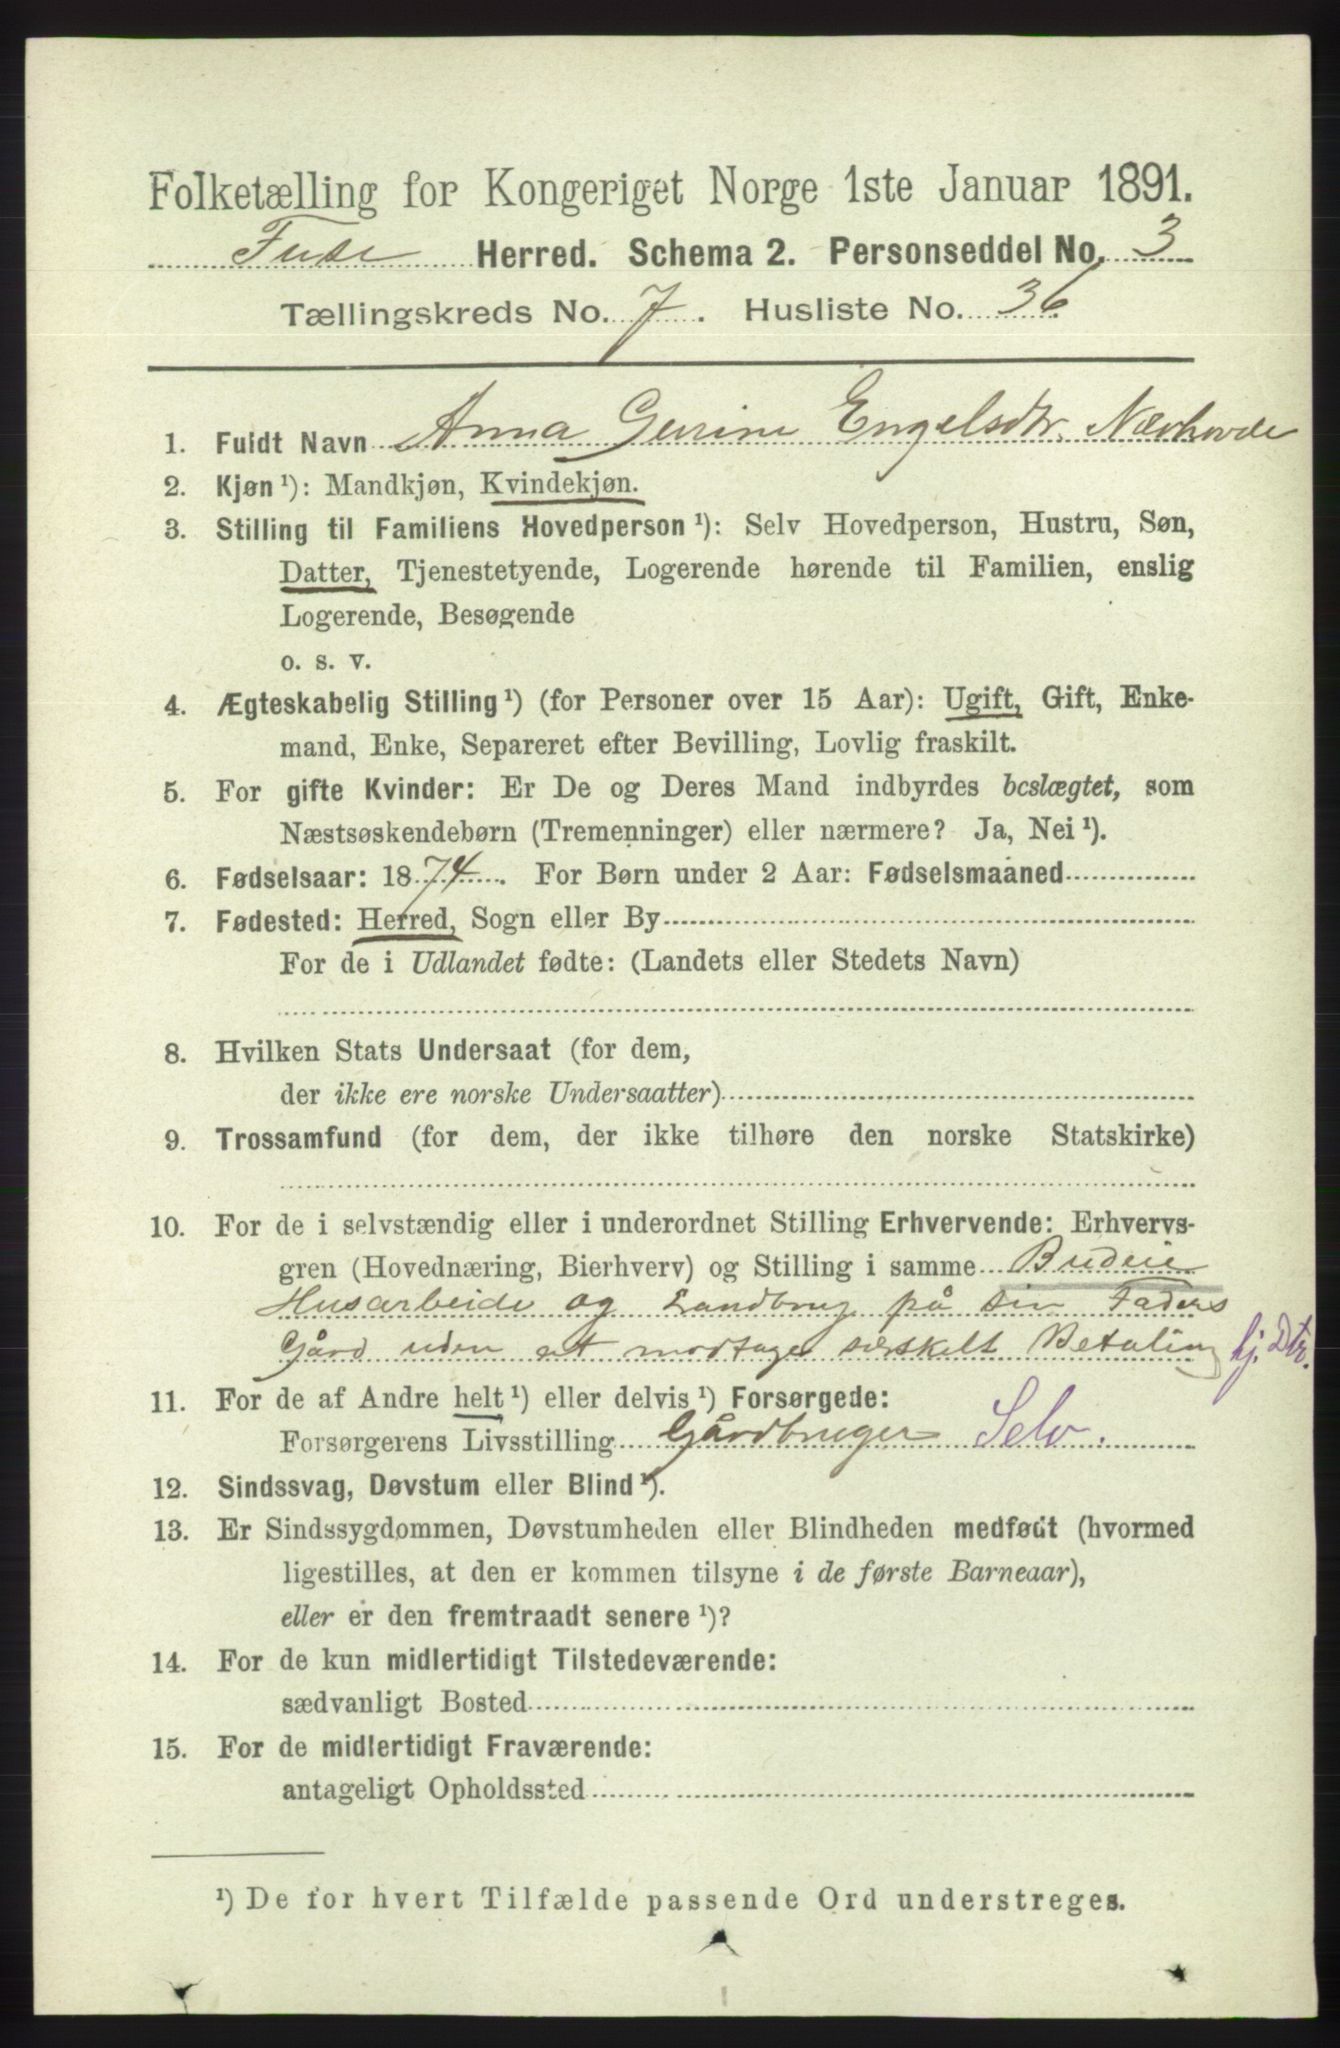 Folketælling for Kongeriget Norge 1ste Januar 1891.
Fuse Herred. Schema 2. Personseddel No. 3
Tællingskreds No. 7. Husliste No. 36
1. Fuldt Navn Anna Gurine Engelsdtr. Nævhovde
2. Kjøn ¹): Mandkjøn, Kvindekjøn.
3. Stilling til Familiens Hovedperson ¹): Selv Hovedperson, Hustru, Søn,
Datter, Tjenestetyende, Logerende hørende til Familien, enslig
Logerende, Besøgende
o. s. v.
4. Ægteskabelig Stilling ¹) (for Personer over 15 Aar): Ugift, Gift, Enke-
mand, Enke, Separeret efter Bevilling, Lovlig fraskilt.
5. For gifte Kvinder: Er De og Deres Mand indbyrdes beslægtet, som
Næstsøskendebørn (Tremenninger) eller nærmere? Ja, Nei ¹).
6. Fødselsaar: 1874. For Børn under 2 Aar: Fødselsmaaned
7. Fødested: Herred, Sogn eller By
For de i Udlandet fødte: (Landets eller Stedets Navn)
8. Hvilken Stats Undersaat (for dem,
der ikke ere norske Undersaatter)
9. Trossamfund (for dem, der ikke tilhøre den norske Statskirke)
10. For de i selvstændig eller i underordnet Stilling Erhvervende: Erhvervs-
gren (Hovednæring, Bierhverv) og Stilling i samme Budeie
Husarbeide og Landbrug på sin Faders
Gård uden at modtage særskelt Betaling hj. Dtr.
11. For de af Andre helt ¹) eller delvis ¹) Forsørgede:
Forsørgerens Livsstilling Gårdbruger Selv.
12. Sindssvag, Døvstum eller Blind ¹).
13. Er Sindssygdommen, Døvstumheden eller Blindheden medfødt (hvormed
ligestilles, at den er kommen tilsyne i de første Barneaar),
eller er den fremtraadt senere ¹)?
14. For de kun midlertidigt Tilstedeværende:
sædvanligt Bosted
15. For de midlertidigt Fraværende:
antageligt Opholdssted
¹) De for hvert Tilfælde passende Ord understreges.